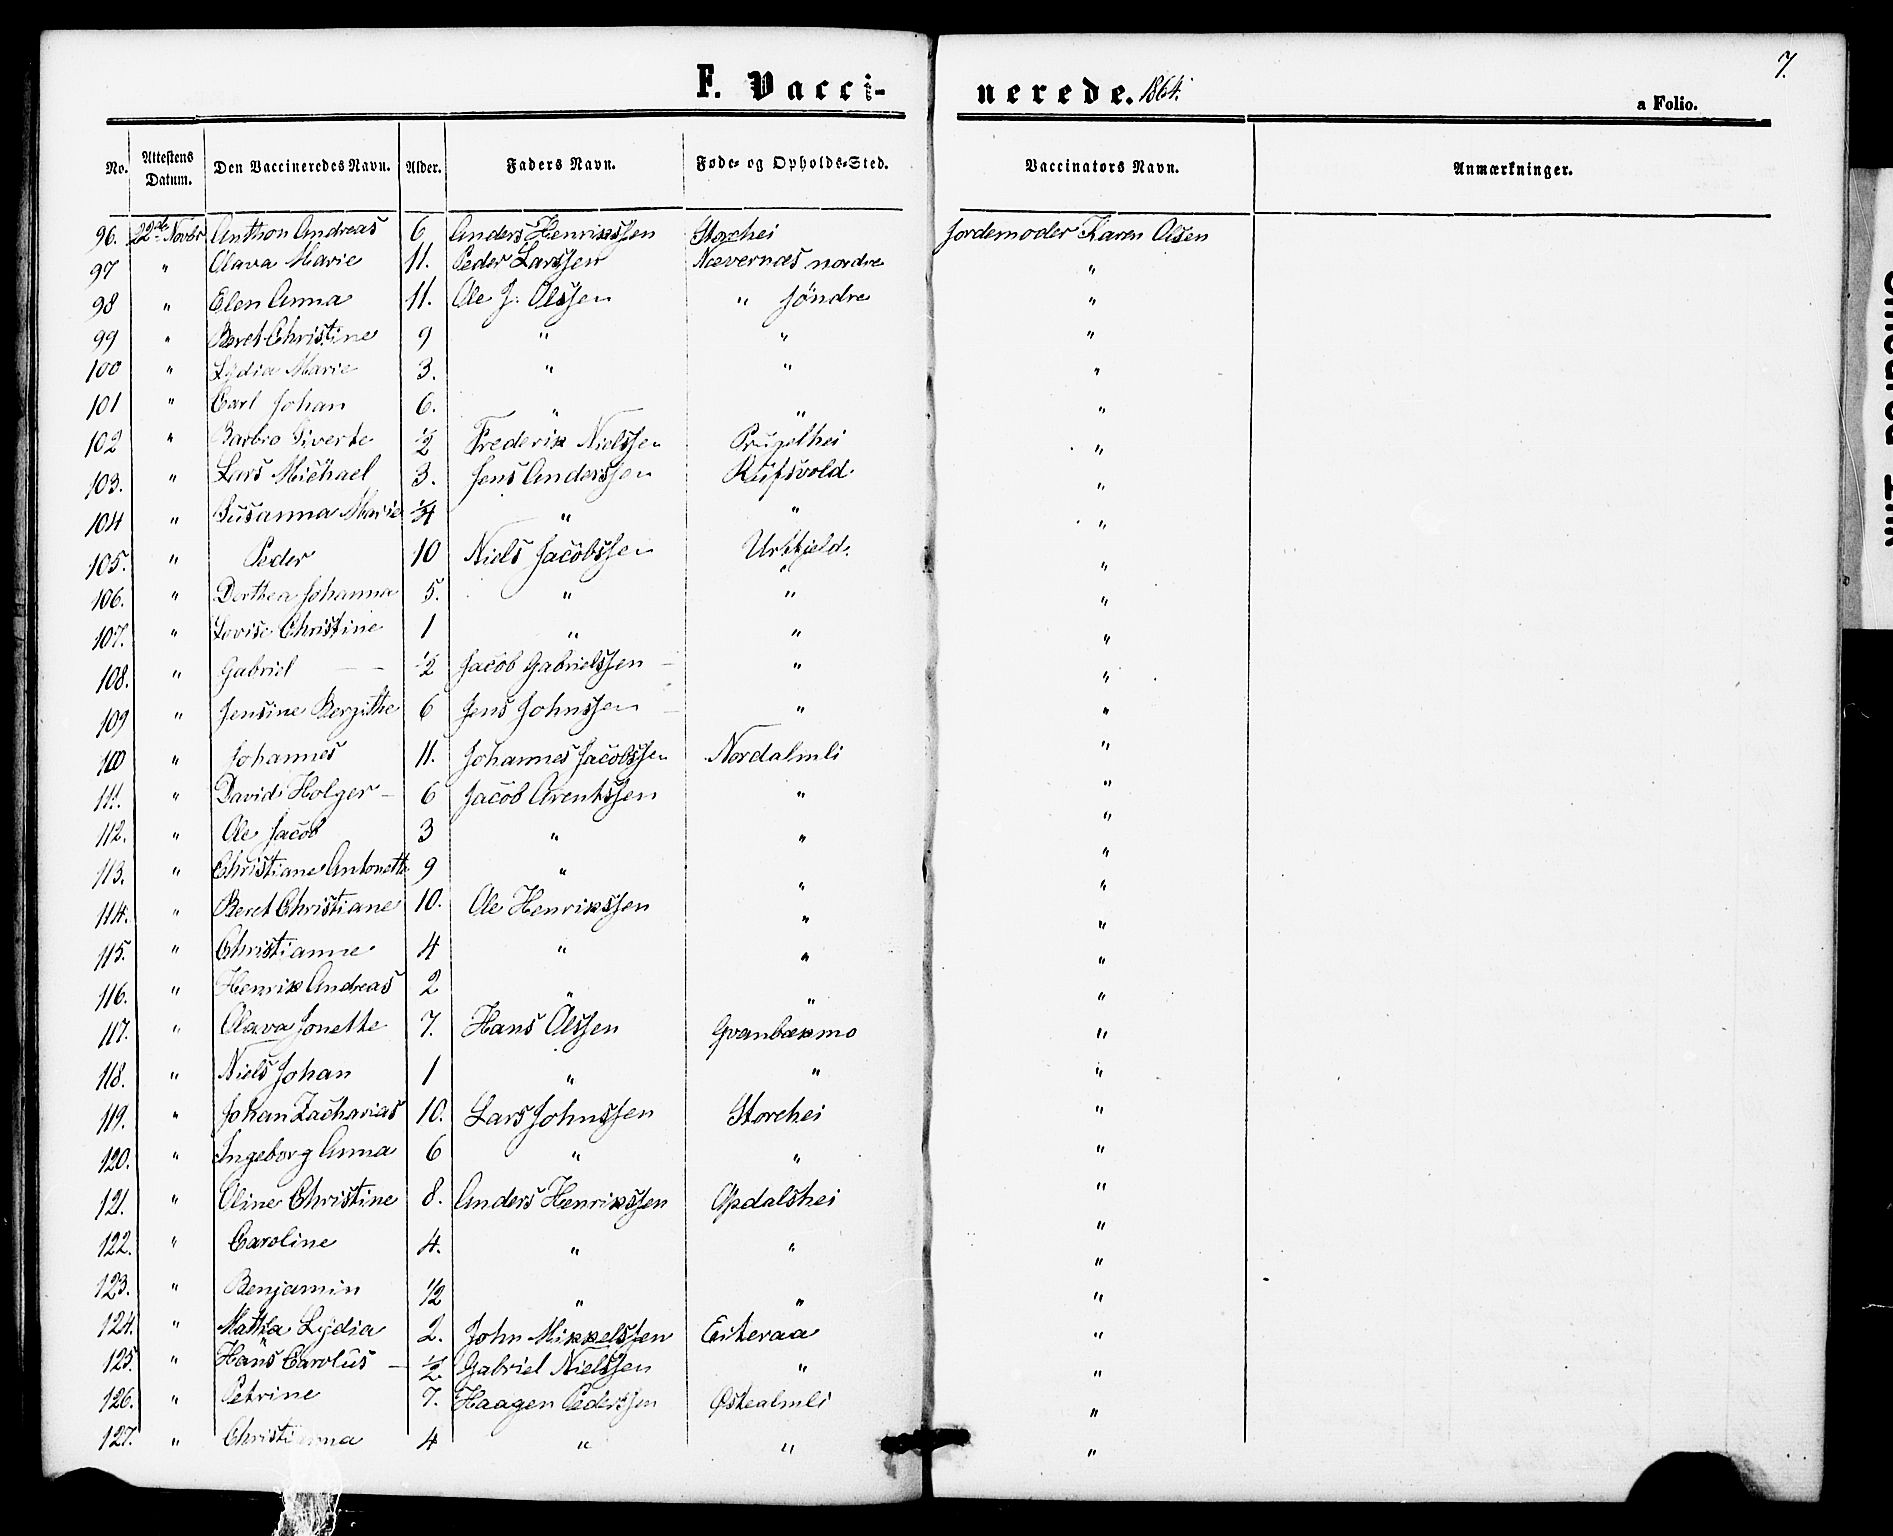 7.
F. Vacci-nerede. 1864.
a Folio.
No. Attestens Datum. Den Vaccineredes Navn. Alder. Faders Navn. Føde- og Opholds-Sted. Vaccinators Navn. Anmærkninger.
96. 22de Novbr Anthon Andreas 6 Anders Henrikssen Storhei Jordemoder Karen Olsen
97 " Olava Marie 11. Peder Larssen Nævernæs nordre "
98 " Elen Anna 11. Ole J. Olssen " søndre "
99 " Beret Christine 9 " " "
100 " Lydia Marie 3. " " "
101 " Carl Johan 6. " " "
102 " Barbro Siverte 1/2 Frederik Nielssen "
103. " Lars Michael 3. Jens Anderssen "
104 " Susanna Marie 3/4 " " "
105. " Peder 10 Niels Jacobssen Urtfjeld. "
106. " Dorthea Johanna 5. " " "
107. " Lovise Christine 1 " " "
108. " Gabriel — — 1/2 Jacob Gabrielssen — " "
109 " Jensine Bergithe 6 Jens Johnssen — " "
100 " Johannes 11. Johannes Jacobssen Nordalmli "
111. " David Holger — 6 Jacob Arentssen " "
112. " Ole Jacob 3 " " "
113. " Christiane Antonette 9 " " "
114. " Beret Christiane 10. Ole Henrikssen " "
115. " Christianne 4 " " "
116. " Henrik Andreas 2 " " "
117. " Olava Jonette 7. Hans Olssen Gvanbækmo "
118. " Niels Johan 1 " " "
119. " Johan Zacharias 10. Lars Johnssen Storhei "
120. " Ingeborg Anna 6 " " "
121. " Oline Christine 8. Anders Henrikssen Opdalshei "
122. " Caroline 4. " " "
123. " Benjamin 1/2 " " "
124. " Mathea Lydia 2. John Mikkelssen Eiteraa "
125. " Hans Carolus — 1/2 Gabriel Nielssen " "
126. " Petrine 7. Haagen Pederssen Østealmli "
127. " Christianna 4 " " "